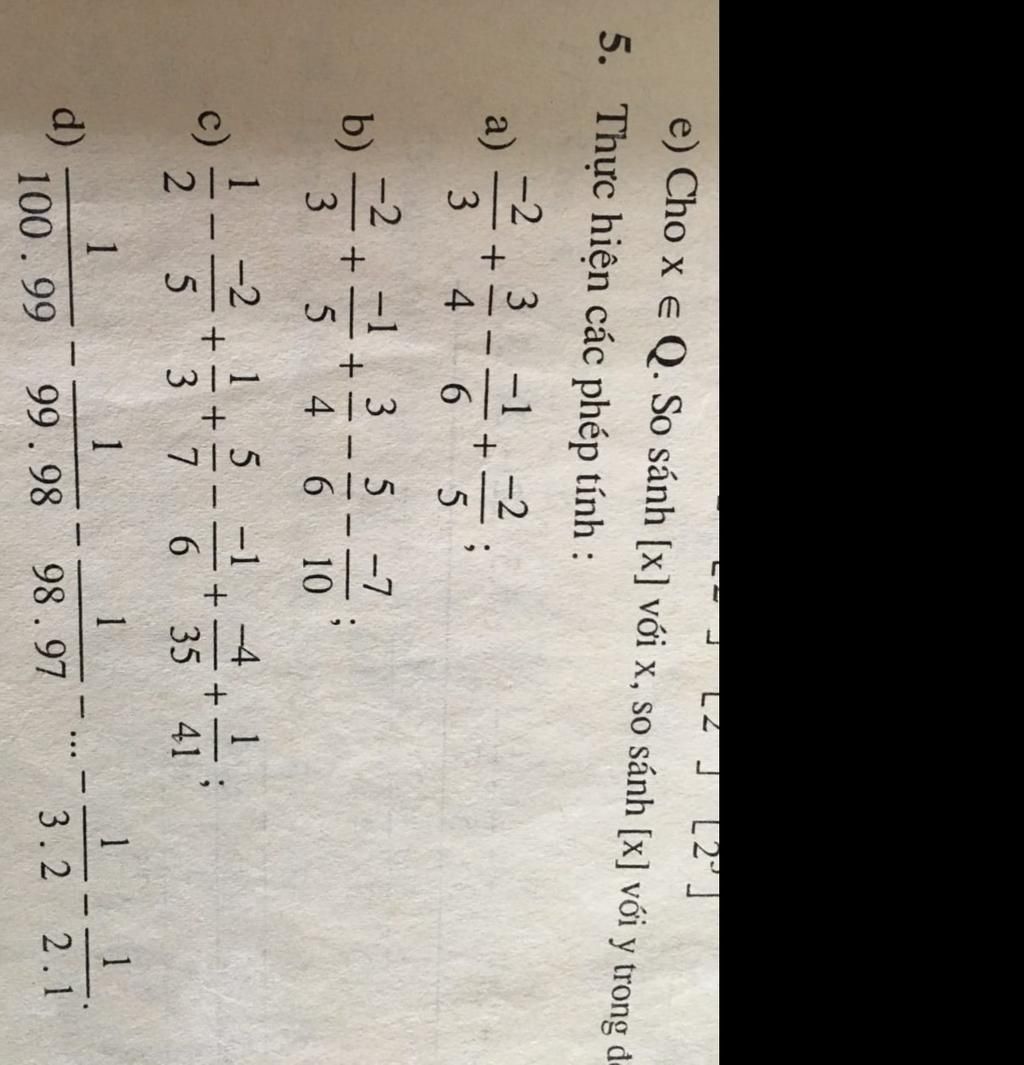 e) Cho x ∈ Q. So sánh [x] với x, so sánh [x] với y trong
5. Thực hiện các phép tính :
a) \frac{-2}{3} + \frac{3}{4} - \frac{-1}{6} + \frac{-2}{5} ;
b) \frac{-2}{3} + \frac{-1}{5} + \frac{3}{4} - \frac{5}{6} - \frac{-7}{10} ;
c) \frac{1}{2} - \frac{-2}{5} + \frac{1}{3} + \frac{5}{7} - \frac{-1}{6} + \frac{-4}{35} + \frac{1}{41} ;
d) \frac{1}{100 . 99} - \frac{1}{99 . 98} - \frac{1}{98 . 97} - ... - \frac{1}{3 . 2} - \frac{1}{2 . 1} .